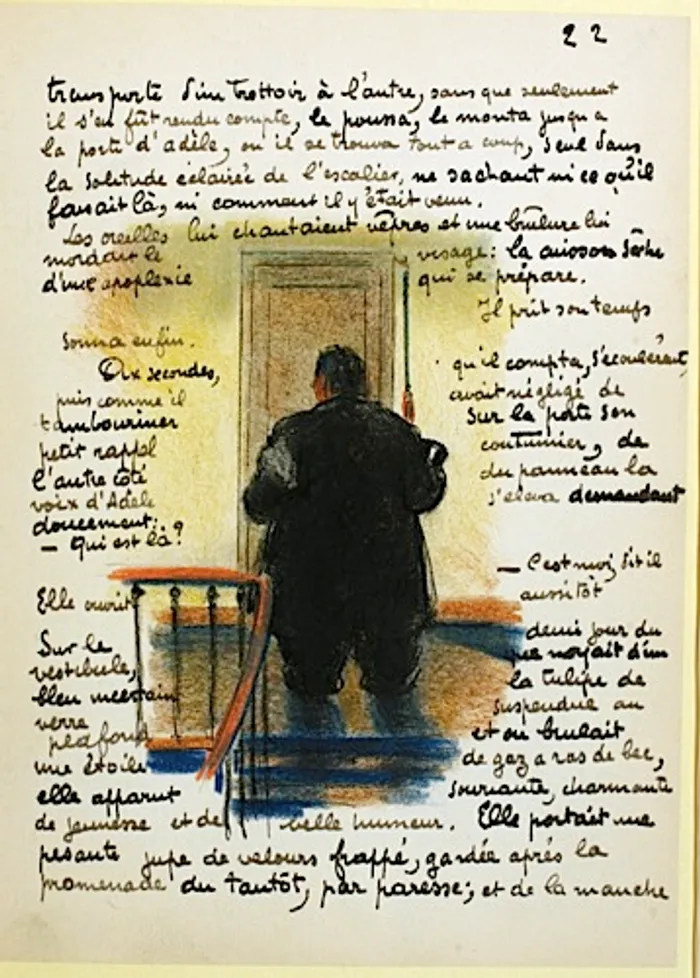 22
transporté d'un trottoir à l'autre, sans que seulement
il s'en fût rendu compte, le poussa, le monta jusqu'a
la porte d'adèle, ou il se trouva tout a coup, seul dans
la solitude éclairée de l'escalier, ne sachant ni ce qu'il
faisait là, ni comment il y était venu.
Les oreilles lui chantaient vêpres et une brulure lui
mordait le visage: la cuisson sèche
d'une apoplexie qui se prépare.
Il prit son temps
Sonna enfin.
Dix secondes, qu'il compta, s'écoulèrent,
puis comme il avait négligé de
tambouriner sur la porte son
petit rappel coutumier, de
l'autre côté du panneau la
voix d'Adèle s'éleva demandant
doucement:
— Qui est là?
— C'est moi, dit il
aussitôt
Elle ouvrit
Sur le demi jour du
vestibule, que noyait d'un
bleu incertain la tulipe de
verre suspendue au
plafond et ou brulait
une étoile de gaz a ras de bec,
elle apparut souriante, charmante
de jeunesse et de belle humeur. Elle portait une
pesante jupe de velours frappé, gardée après la
promenade du tantôt, par paresse; et de la manche